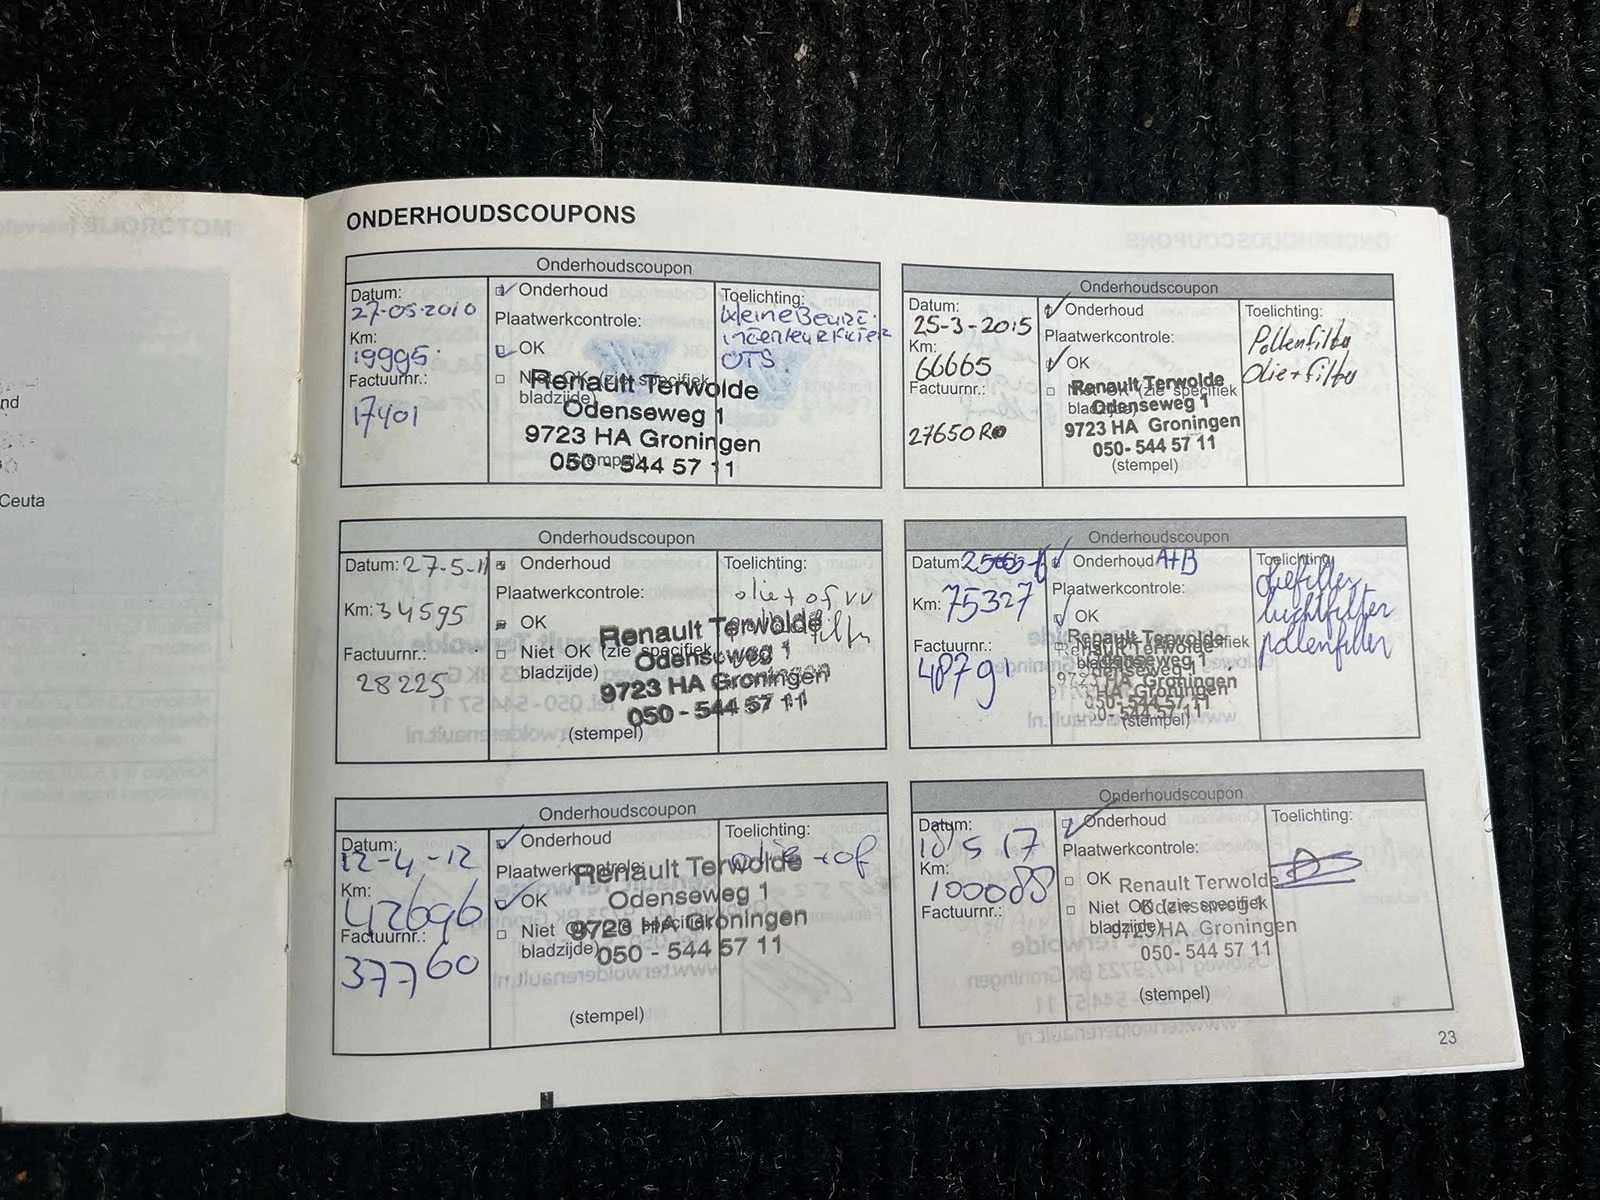 nd
Ceuta
ONDERHOUDSCOUPONS
Onderhoudscoupon
Datum:
27-05-2010
Km:
19995
Factuurnr.:
17401
Onderhoud
Plaatwerkcontrole:
OK
Niet OK (zie specifiek
bladzijde)
Renault Terwolde
Odenseweg 1
9723 HA Groningen
050 - 544 57 11
(stempel)
Toelichting:
kleine Beurt.
interieurfilter
OTS
Onderhoudscoupon
Datum: 27-5-11
Km: 34595
Factuurnr.:
28225
Onderhoud
Plaatwerkcontrole:
OK
Niet OK (zie specifiek
bladzijde)
Renault Terwolde
Odenseweg 1
9723 HA Groningen
050 - 544 57 11
(stempel)
Toelichting:
olie + of
Onderhoudscoupon
Datum:
12-4-12
Km:
42696
Factuurnr.:
37760
Onderhoud
Plaatwerkcontrole:
OK
Niet OK (zie specifiek
bladzijde)
Renault Terwolde
Odenseweg 1
9723 HA Groningen
050 - 544 57 11
(stempel)
Toelichting:
olie + of
Onderhoudscoupon
Datum:
25-3-2015
Km:
66665
Factuurnr.:
27650R
Onderhoud
Plaatwerkcontrole:
OK
Niet OK (zie specifiek
bladzijde)
Renault Terwolde
Odenseweg 1
9723 HA Groningen
050- 544 57 11
(stempel)
Toelichting:
Pollenfilter
Olie + filter
Onderhoudscoupon
Datum:
Km: 75327
Factuurnr.:
48791
Onderhoud A+B
Plaatwerkcontrole:
OK
Renault Terwolde
Odenseweg 1
9723 HA Groningen
050- 544 57 11
(stempel)
Toelichting
oliefilter
luchtfilter
pollenfilter
Onderhoudscoupon
Datum:
18 5 17
Km:
100088
Factuurnr.:
Onderhoud
Plaatwerkcontrole:
OK
Niet OK (zie specifiek
bladzijde)
Renault Terwolde
Odenseweg 1
9723 HA Groningen
050- 544 57 11
(stempel)
Toelichting:
23